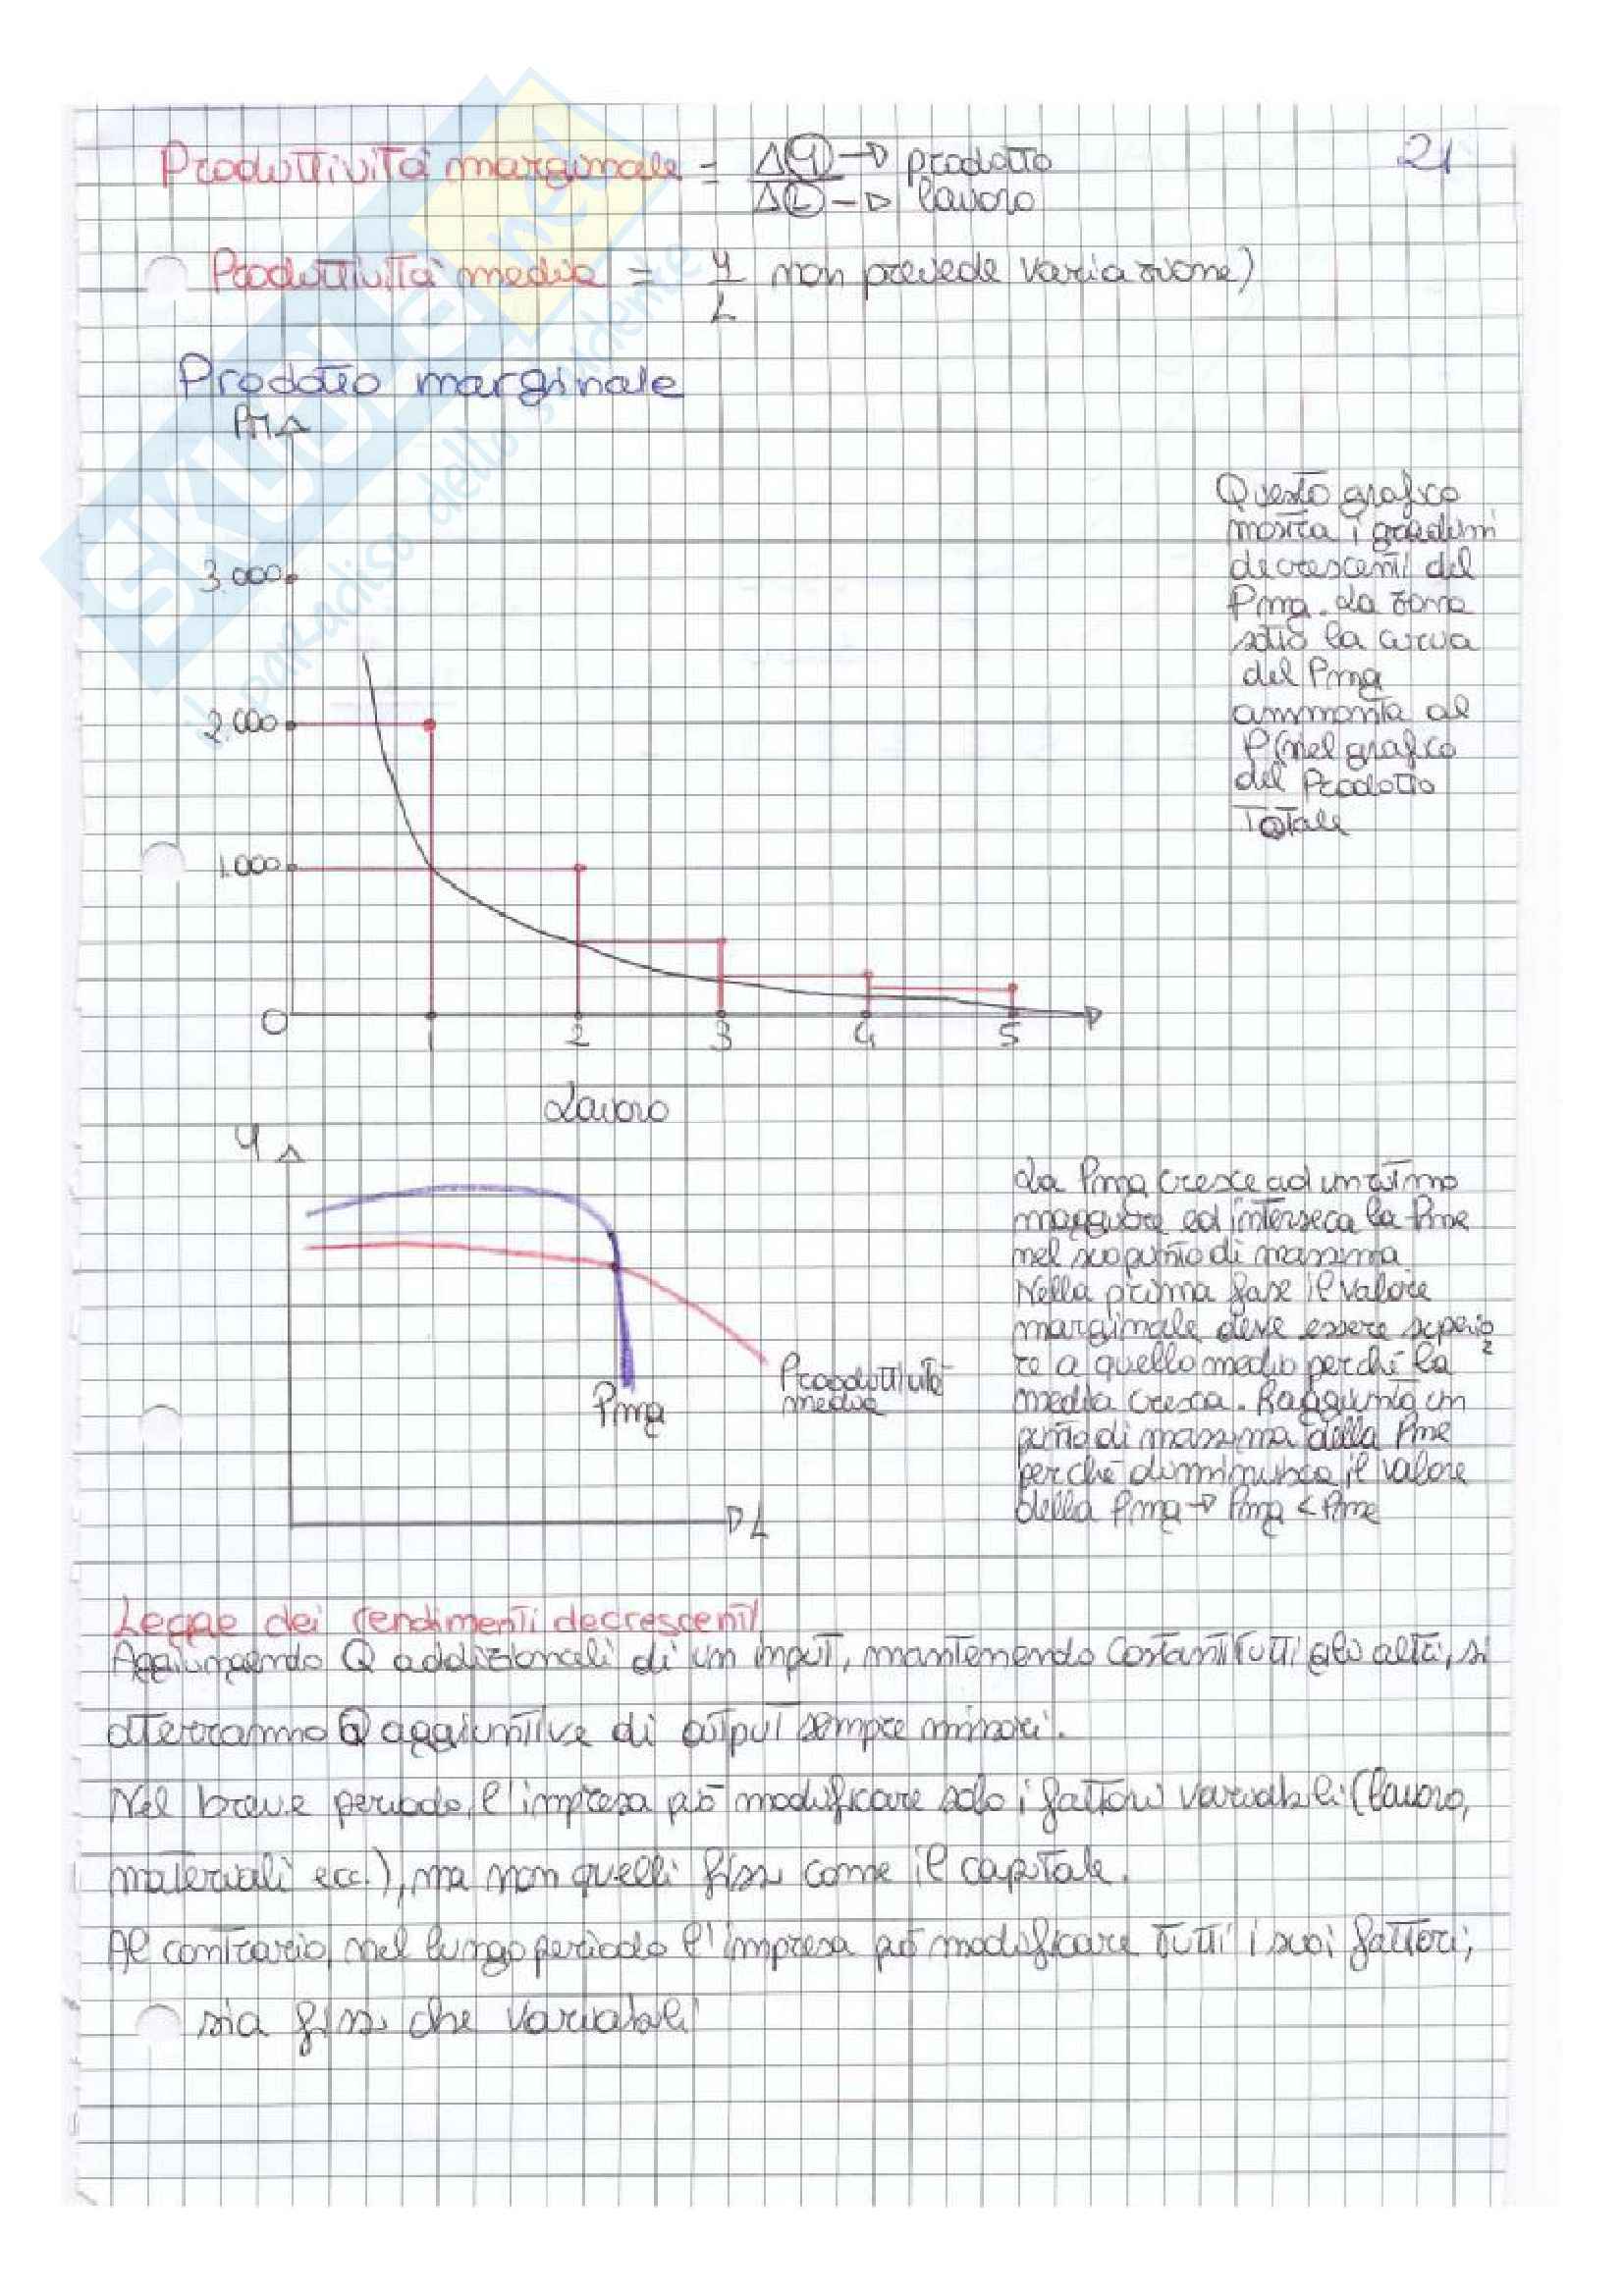 21
Produttività marginale = ΔY → prodotto
ΔL → lavoro
Produttività media = Y non prevede variazione)
L
Prodotto marginale
PM
3.000
2.000
1.000
0 1 2 3 4 5
Lavoro
Questo grafico
mostra i
decrescenti del
Pmg. La zona
sotto la curva
del Pmg
ammonta al
P(nel grafico
del Prodotto
Totale
Y
Pmg
Produttività
media
L
La Pmg cresce ad un ritmo
maggiore ed interseca la Pme
nel suo punto di massimo.
Nella prima fase il valore
marginale deve essere superio
re a quello medio perché la
media cresca. Raggiunto un
punto di massimo della Pme
perché diminuisca il valore
della Pmg → Pmg < Pme
Legge dei rendimenti decrescenti
Aggiungendo Q addizionali di un input, mantenendo costanti tutti gli altri, si
otterranno Q aggiuntive di output sempre minori.
Nel breve periodo, l'impresa può modificare solo i fattori variabili (lavoro,
materiali ecc.), ma non quelli fissi come il capitale.
Al contrario, nel lungo periodo l'impresa può modificare tutti i suoi fattori,
sia fissi che variabili
SKUOLA.net
il paradiso dello studente